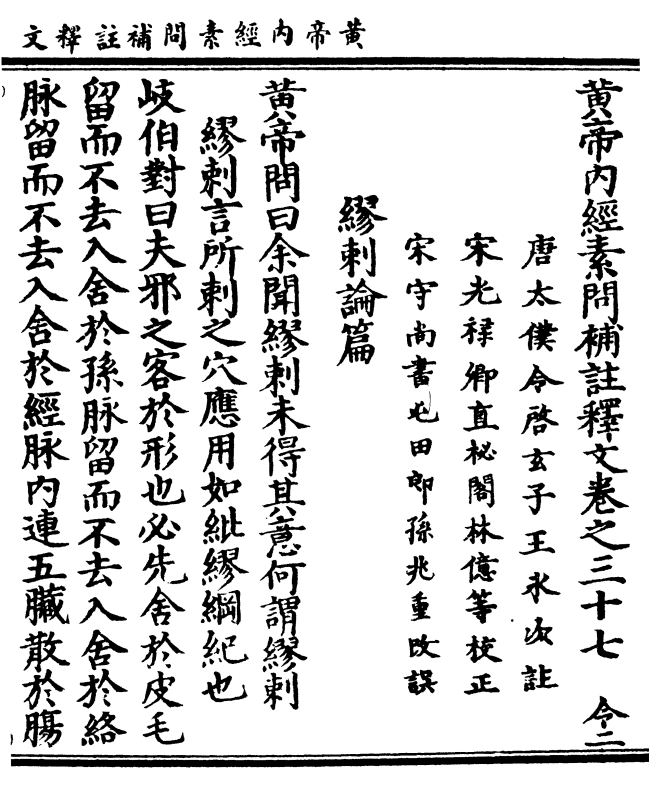 黃帝内經素問補註釋文
黃帝内經素問補註釋文卷之三十七　令二
唐太僕令啓玄子王冰次註
宋光祿卿直祕閣林億等校正
宋守尚書屯田郎孫兆重改誤
繆刺論篇
黃帝問曰余聞繆刺未得其意何謂繆刺
繆刺言所刺之穴應用如紕繆綱紀也
岐伯對曰夫邪之客於形也必先舍於皮毛
留而不去入舍於孫脉留而不去入舍於絡
脉留而不去入舍於經脉内連五臟散於腸